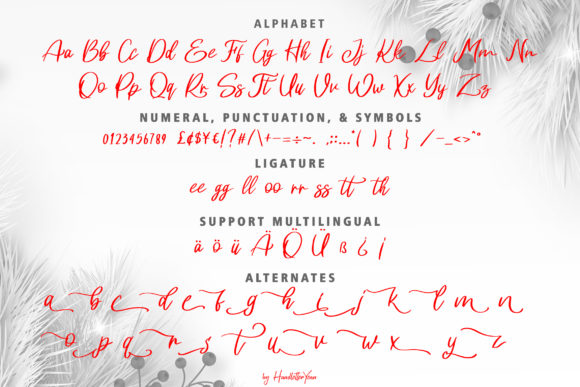 ALPHABET
Aa Bb Cc Dd Ee Ff Gg Hh Ii Jj Kk Ll Mm Nn
Oo Pp Qq Rr Ss Tt Uu Vv Ww Xx Yy Zz
NUMERAL, PUNCTUATION, & SYMBOLS
0123456789 £¢$¥€!?#/\+-=÷~. ,:;...*( ) { } /-_<>^°
LIGATURE
ee gg ll oo rr ss tt th
SUPPORT MULTILINGUAL
ä ö ü Ä Ö Ü ß ¿ ¡
ALTERNATES
a b c d e f g h i j k l m n
o p q r s t u v w x y z
by HandletterYean